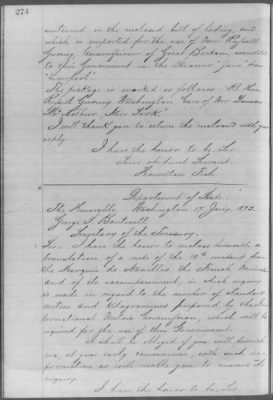 274
mentioned in the enclosed bill of lading, and
which is imported for the use of Hon. Russell
Gurney, Commissioner of Great Britain, accredited
to this Government in the Steamer "Java" from
"Liverpool".
The package is marked as follows: "Rt. Hon.
Russell Gurney, Washington, Care of
New York.
I will thank you to return the enclosed with your
reply.
I have the honor to be Sir
Your obedient Servant
Hamilton Fish
Department of State
The Honorable Washington 17 Jany. 1873.
George S. Boutwell,
Secretary of the Treasury.
Sir: I have the honor to enclose herewith a
translation of a note of the 10th instant from
the Marquis de Noailles, the French Minister
and of its accompaniment, in which inquiry
is made in regard to the number of standard
metres and kilogrammes prepared by the In-
ternational Metric Commission, which will be
required for the use of this Government.
I shall be obliged if you will furnish
me, at your early convenience, with such in-
formation as will enable me to answer the
inquiry.
I have the honor to be Sir